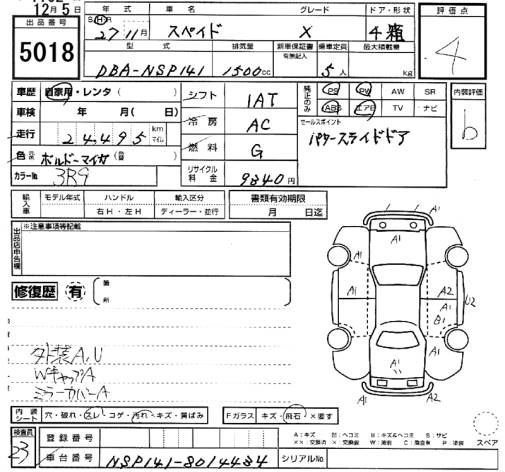 12月5日
出品番号
5018
年式 車名 グレード ドア・形状
SH 27年11月 スペイド X 4 箱
評価点
4
型式 排気量 新車保証書 乗車定員 最大積載量
有無記入
DBA-NSP141 1500cc 5人 kg
車歴 自家用・レンタ( )
車検 年 月( )
走行 2 4,4 9 5 km マイル
色 ボルドーマイカ
カラーNo 3R9
シフト 1AT
冷房 AC
燃料 G
リサイクル料金 9840円
純正のみ
PS PW AW SR
ABS エアB TV ナビ
セールスポイント
パワースライドドア
内装評価
b
輸入車
モデル年式 ハンドル 輸入区分
右H・左H ディーラー・並行
書類有効期限
月 日迄
出品店申告欄
※注意事項等記載
修復歴 有 箇所
外装A,U
WキャップA
ミラーカバーA
A1
A1
A1
A1
A2
U2
A1
B1
A1
A2
A1
A1
内装シート
穴・破れ・スレ・コゲ・汚れ・キズ・黄ばみ
Fガラス キズ・飛石・×要す
スペア
検査員
23
登録番号
車台番号 NSP141-8014484 シリアルNo
A:キズ U:ヘコミ B:キズ&ヘコミ S:サビ